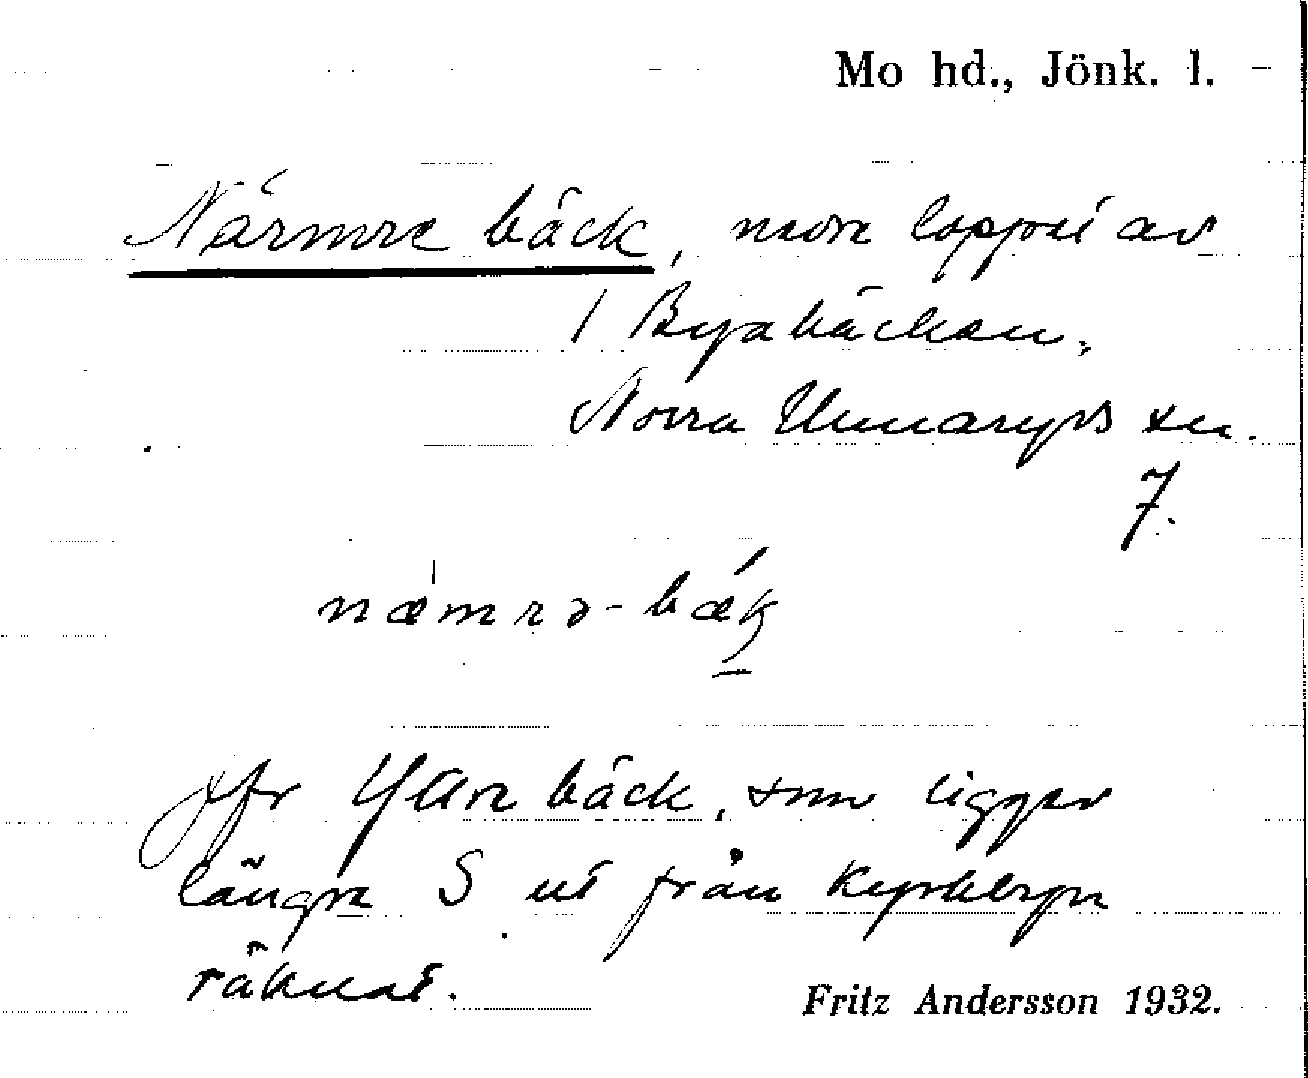 Mo hd., Jönk. l.
Närmre bäck, nedre loppet av
/ Byabäcken,
Norra Unnaryds sn.
7.
næmrə-bæk
Jfr Yttre bäck, som ligger
längre S ut från kyrkbyn
räknat.
Fritz Andersson 1932.